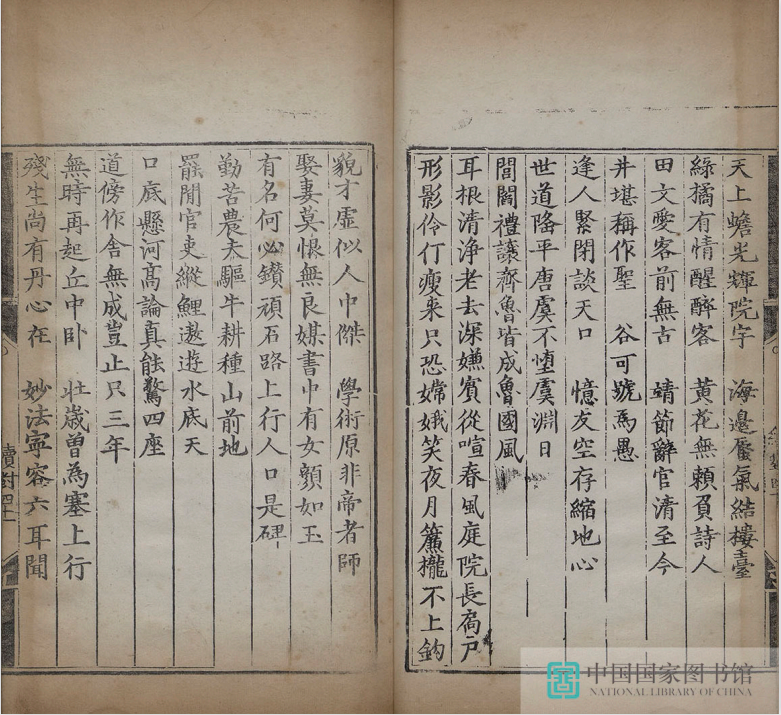 天上蟾光輝院宇　海邊蜃氣結樓臺
綠橘有情醒醉客　黃花無賴負詩人
田文愛客前無古　靖節辭官清至今
井堪稱作聖　谷可號爲愚
逢人緊閉談天口　憶友空存縮地心
世道隆平唐虞不墮虞淵日
閭閻禮讓齊魯皆成魯國風
耳根清淨老去深嫌賓從喧春風庭院長扃戶
形影伶仃瘦來只恐嫦娥笑夜月簾櫳不上鈎
貌才虛似人中傑　學術原非帝者師
娶妻莫恨無良媒書中有女顏如玉
有名何必鑽頑石路上行人口是碑
勤苦農夫驅牛耕種山前地
罷閒官吏縱鯉遨遊水底天
口底懸河高論真能驚四座
道傍作舍無成豈止只三年
無時再起丘中卧　壯歲曾爲塞上行
殘生尚有丹心在　妙法寧容六耳聞
續對四十一
中国国家图书馆
NATIONAL LIBRARY OF CHINA